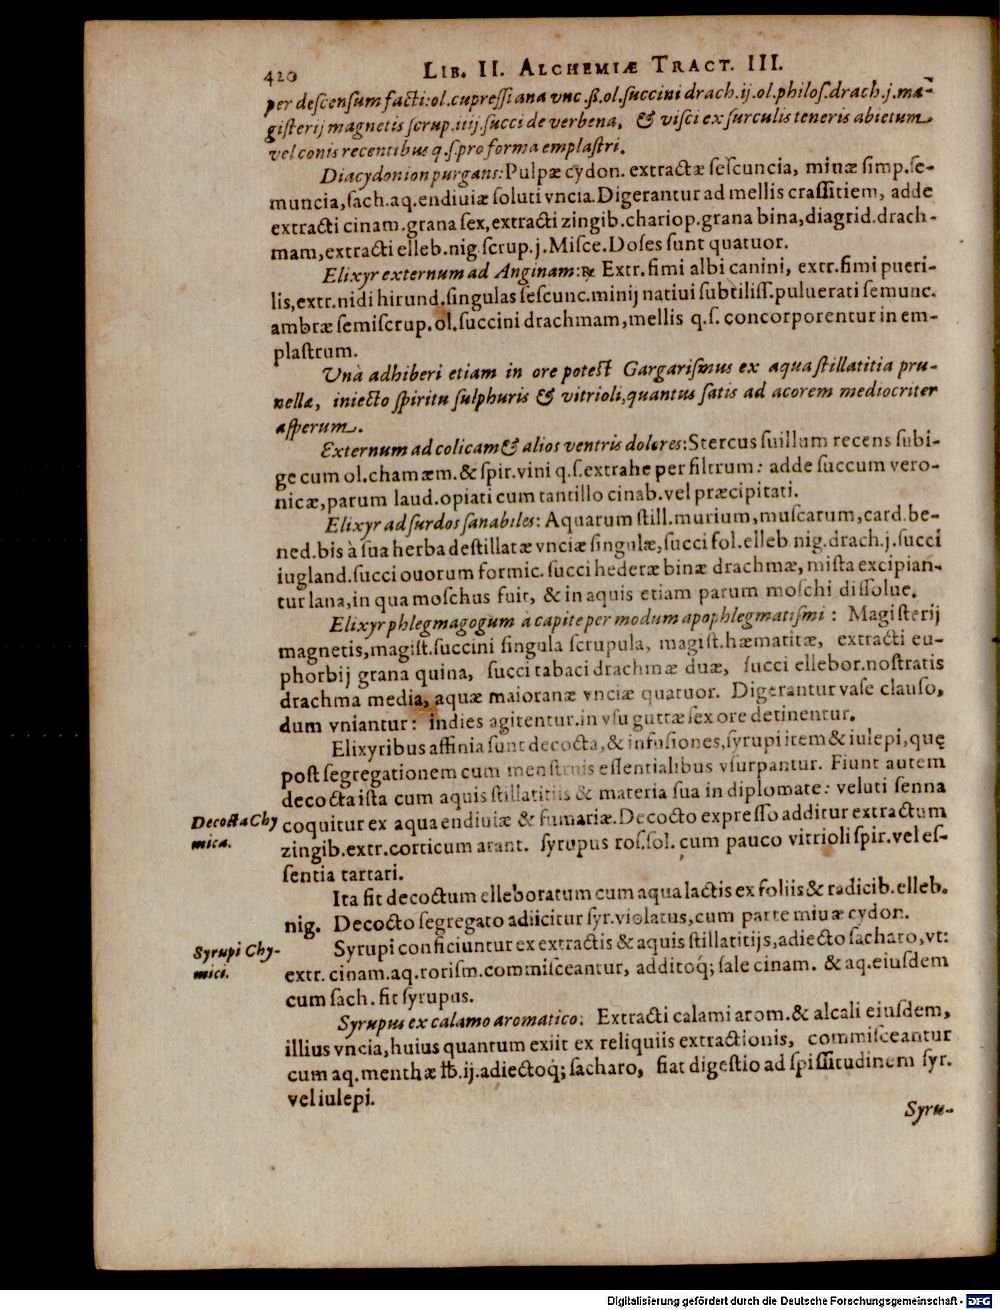 420 LIB. II. ALCHEMIÆ TRACT. III.
per deſcenſum facti: ol. cupreſſi ana vnc. ß. ol. ſuccini drach. ij. ol. philoſ. drach. j. ma-
giſterij magnetis ſcrup. iiij. ſucci de verbena, & viſci ex ſurculis teneris abietum
vel conis recentibus q. ſ. pro forma emplaſtri.
Diacydonion purgans: Pulpæ cydon. extractæ ſeſcuncia, miuæ ſimp. ſe-
muncia, ſach. aq. endiuiæ ſoluti vncia. Digerantur ad mellis craſſitiem, adde
extracti cinam. grana ſex, extracti zingib. chariop. grana bina, diagrid. drach-
mam, extracti elleb. nig. ſcrup. j. Miſce. Doſes ſunt quatuor.
Elixyr externum ad Anginam: ℞ Extr. fimi albi canini, extr. fimi pueri-
lis, extr. nidi hirund. ſingulas ſeſcunc. minij natiui ſubtiliſſ. puluerati ſemunc.
ambræ ſemiſcrup. ol. ſuccini drachmam, mellis q. ſ. concorporentur in em-
plaſtrum.
Vnà adhiberi etiam in ore poteſt Gargariſmus ex aqua ſtillatitia pru-
nellæ, iniecto ſpiritu ſulphuris & vitrioli, quantus ſatis ad acorem mediocriter
aſperum.
Externum ad colicam & alios ventris dolores: Stercus ſuillum recens ſubi-
ge cum ol. chamæm. & ſpir. vini q. ſ. extrahe per filtrum: adde ſuccum vero-
nicæ, parum laud. opiati cum tantillo cinab. vel præcipitati.
Elixyr ad ſurdos ſanabiles: Aquarum ſtill. murium, muſcarum, card. be-
ned. bis à ſua herba deſtillatæ vnciæ ſingulæ, ſucci fol. elleb nig. drach. j. ſucci
iugland. ſucci ouorum formic. ſucci hederæ binæ drachmæ, miſta excipian-
tur lana, in qua moſchus fuit, & in aquis etiam parum moſchi diſſolue.
Elixyr phlegmagogum à capite per modum apophlegmatiſmi: Magiſterij
magnetis, magiſt. ſuccini ſingula ſcrupula, magiſt. hæmatitæ, extracti eu-
phorbij grana quina, ſucci tabaci drachmæ duæ, ſucci ellebor. noſtratis
drachma media, aquæ maioranæ vnciæ quatuor. Digerantur vaſe clauſo,
dum vniantur: indies agitentur. in vſu guttæ ſex ore detinentur.
Elixyribus affinia ſunt decocta, & infuſiones, ſyrupi item & iulepi, quę
poſt ſegregationem cum menſtruis eſſentialibus vſurpantur. Fiunt autem
decocta iſta cum aquis ſtillatitiis & materia ſua in diplomate: veluti ſenna
Decocta Chy
mica.
coquitur ex aqua endiuiæ & fumariæ. Decocto expreſſo additur extractum
zingib. extr. corticum arant. ſyrupus roſ. ſol. cum pauco vitrioli ſpir. vel eſ-
ſentia tartari.
Ita fit decoctum elleboratum cum aqua lactis ex foliis & radicib. elleb.
nig. Decocto ſegregato adiicitur ſyr. violatus, cum parte miuæ cydon.
Syrupi Chy-
mici.
Syrupi conficiuntur ex extractis & aquis ſtillatitijs, adiecto ſacharo, vt:
extr. cinam. aq. roriſm. commiſceantur, additoq́; ſale cinam. & aq. eiuſdem
cum ſach. fit ſyrupus.
Syrupus ex calamo aromatico: Extracti calami arom. & alcali eiuſdem,
illius vncia, huius quantum exiit ex reliquiis extractionis, commiſceantur
cum aq. menthæ ℔. ij. adiectoq́; ſacharo, fiat digeſtio ad ſpiſſitudinem ſyr.
vel iulepi.
Syru-
Digitalisierung gefördert durch die Deutsche Forschungsgemeinschaft - DFG